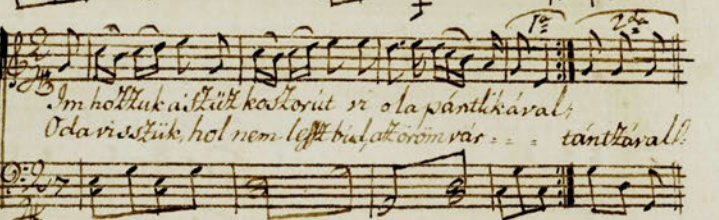 1ª 2da
Im hozzuk a szüz koszorút vi ola pántlikával;
Oda visszük, hol nem lessz búd, az öröm vár - - - tántzával!